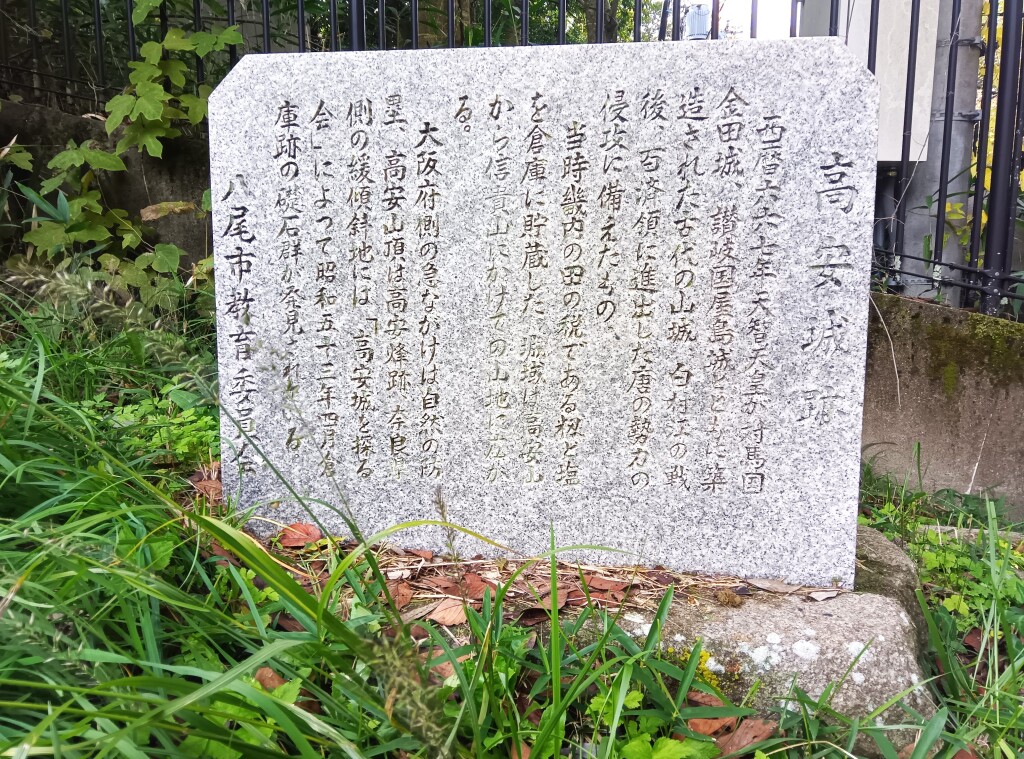 高安城跡
西暦六六七年、天智天皇が対馬国
金田城、讃岐国屋島城とともに築
造された古代の山城。白村江の戦
後、百済領に進出した唐の勢力の
侵攻に備えたもの。
当時畿内の田の税である穀と塩
を倉庫に貯蔵した。城域は高安山
から信貴山にかけての山地に広が
る。
大阪府側の急ながけは自然の防
塁、高安山頂は高安烽跡、奈良県
側の緩傾斜地には、「高安城を探る
会」によって昭和五十三年四月倉
庫跡の礎石群が発見されている
八尾市教育委員会